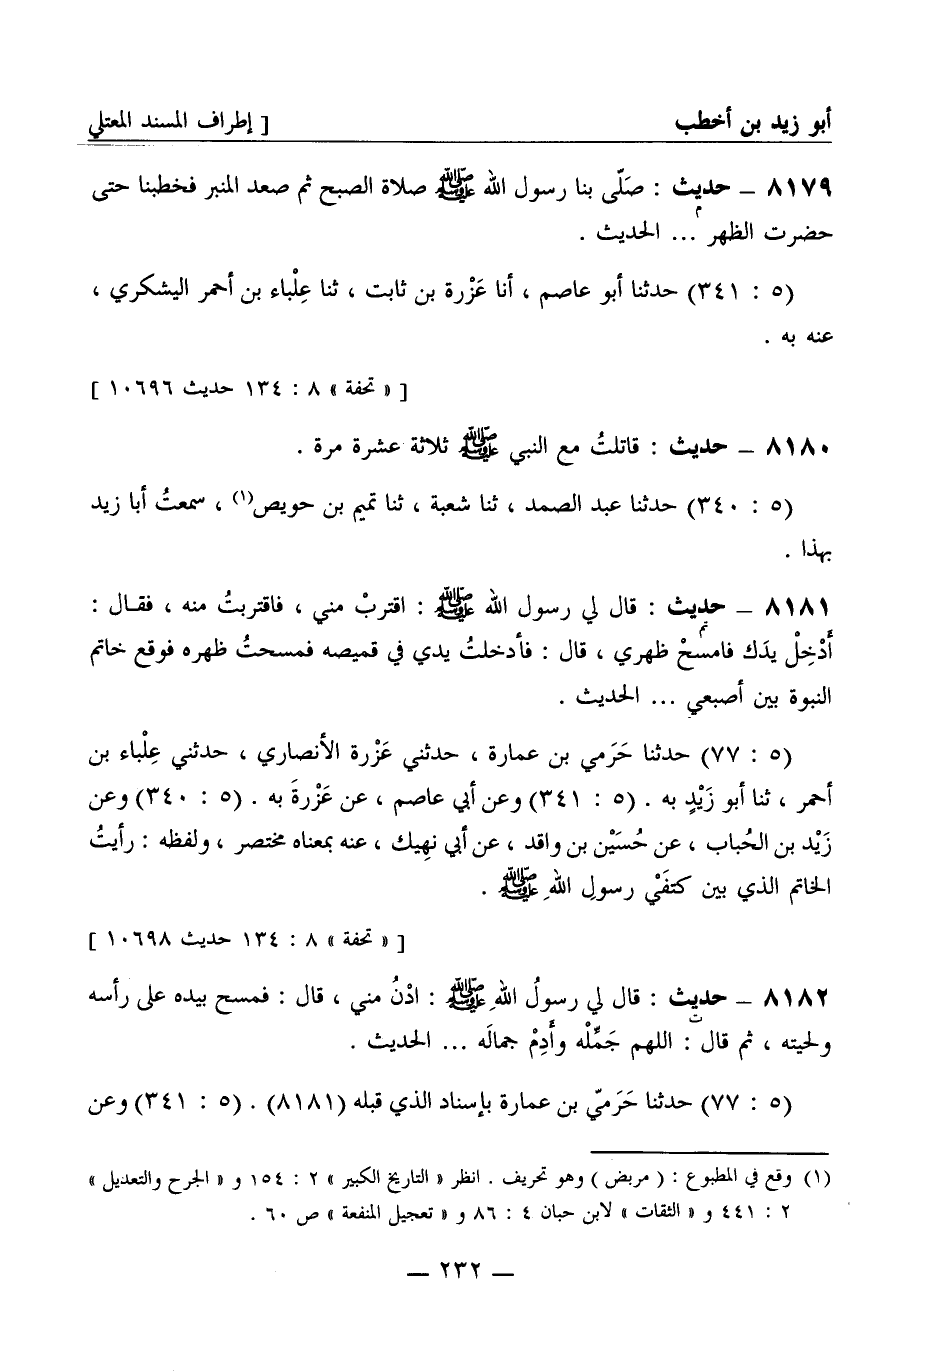 أبو زيد بن أخطب [ إطراف المسند المعتلي
٨١٧٩ ــ حديث : صَلّى بنا رسول الله ﷺ صلاة الصبح ثم صعد المنبر فخطبنا حتى
م
حضرت الظهر ... الحديث .
(٥ : ٣٤١) حدثنا أبو عاصم ، أنا عَزْرة بن ثابت ، ثنا عِلْباء بن أحمر اليشكري ،
عنه به .
[ « تحفة » ٨ : ١٣٤ حديث ١٠٦٩٦ ]
٨١٨٠ ــ حديث : قاتلتُ مع النبي ﷺ ثلاثة عشرة مرة .
(٥ : ٣٤٠) حدثنا عبد الصمد ، ثنا شعبة ، ثنا تميم بن حويص(١) ، سمعتُ أبا زيد
بهذا .
٨١٨١ ــ حديث : قال لي رسول الله ﷺ : اقتربْ مني ، فاقتربتُ منه ، فقال :
تم
أَدْخِلْ يدَك فامسَحْ ظهري ، قال : فأدخلتُ يدي في قميصه فمسحتُ ظهره فوقع خاتم
النبوة بين أصبعي ... الحديث .
(٥ : ٧٧) حدثنا حَرَمي بن عمارة ، حدثني عَزْرة الأنصاري ، حدثني عِلْباء بن
أحمر ، ثنا أبو زَيْدٍ به . (٥ : ٣٤١) وعن أبي عاصم ، عن عَزْرةَ به . (٥ : ٣٤٠) وعن
زَيْد بن الحُباب ، عن حُسَيْن بن واقد ، عن أبي نهِيك ، عنه بمعناه مختصر ، ولفظه : رأيتُ
الخاتم الذي بين كتفَيْ رسولِ اللهِ ﷺ .
[ « تحفة » ٨ : ١٣٤ حديث ١٠٦٩٨ ]
٨١٨٢ ــ حديث : قال لي رسولُ اللهِ ﷺ : ادْنُ مني ، قال : فمسح بيده على رأسه
ت
ولحيته ، ثم قال : اللهم جَمِّلْه وأَدِمْ جمالَه ... الحديث .
(٥ : ٧٧) حدثنا حَرَميّ بن عمارة بإسناد الذي قبله (٨١٨١) . (٥ : ٣٤١) وعن
(١) وقع في المطبوع : ( مربض ) وهو تحريف . انظر « التاريخ الكبير » ٢ : ١٥٤ و « الجرح والتعديل »
٢ : ٤٤١ و « الثقات » لابن حبان ٤ : ٨٦ و « تعجيل المنفعة » ص ٦٠ .
ــ ٢٣٢ ــ